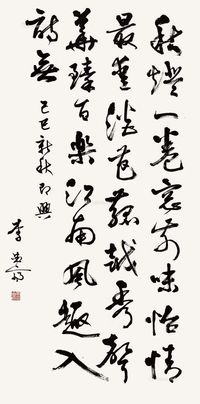 秋燈一卷窓前味怡情
最淡花越秀聲
華臻百樂江南風趣入
詩無
己巳新秋即興
李